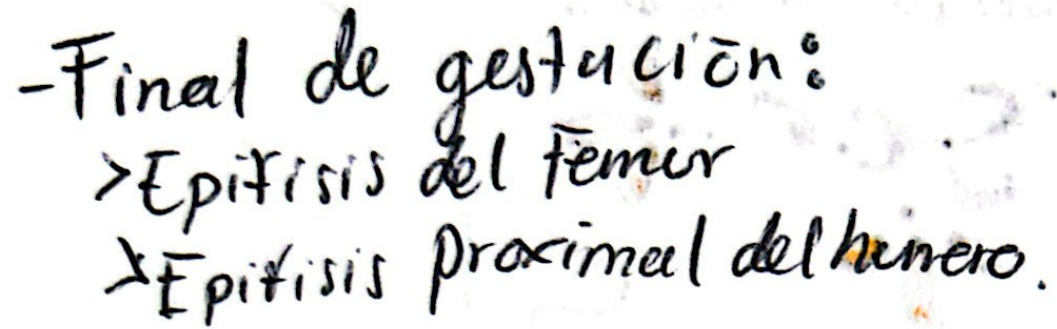 -Final de gestación:
>Epifisis del Femur
>Epifisis proximal del humero.